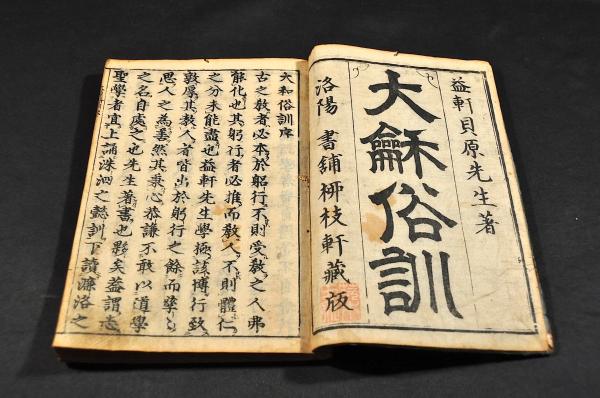 益軒貝原先生著
大龢俗訓
洛陽 書鋪柳枝軒藏版
大和俗訓序
古之教者必本於躬行不則受教之人弗
能化也其躬行者必推而教人不則體仁
之分未能盡也益軒先生學極該博行致
敦厚其教人者皆出於躬行之餘而孳〻
思人之為善然其秉心恭謙不敢以道學
之名自處之也先生著書也夥矣蓋謂志
聖學者宜上誦洙泗之懿訓下讀濂洛之